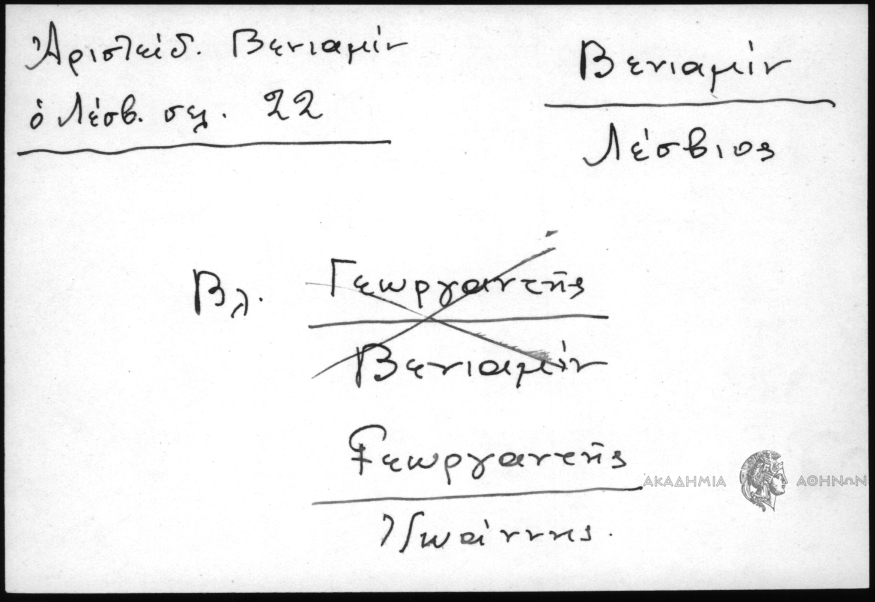 Ἀριστείδ. Βενιαμίν
ὁ Λέσβ. σελ. 22
Βενιαμίν
Λέσβιος
Βλ. Γεωργαντῆς
Βενιαμίν
Γεωργαντῆς
Ἰωάννης.
ΑΚΑΔΗΜΙΑ ΑΘΗΝΩΝ